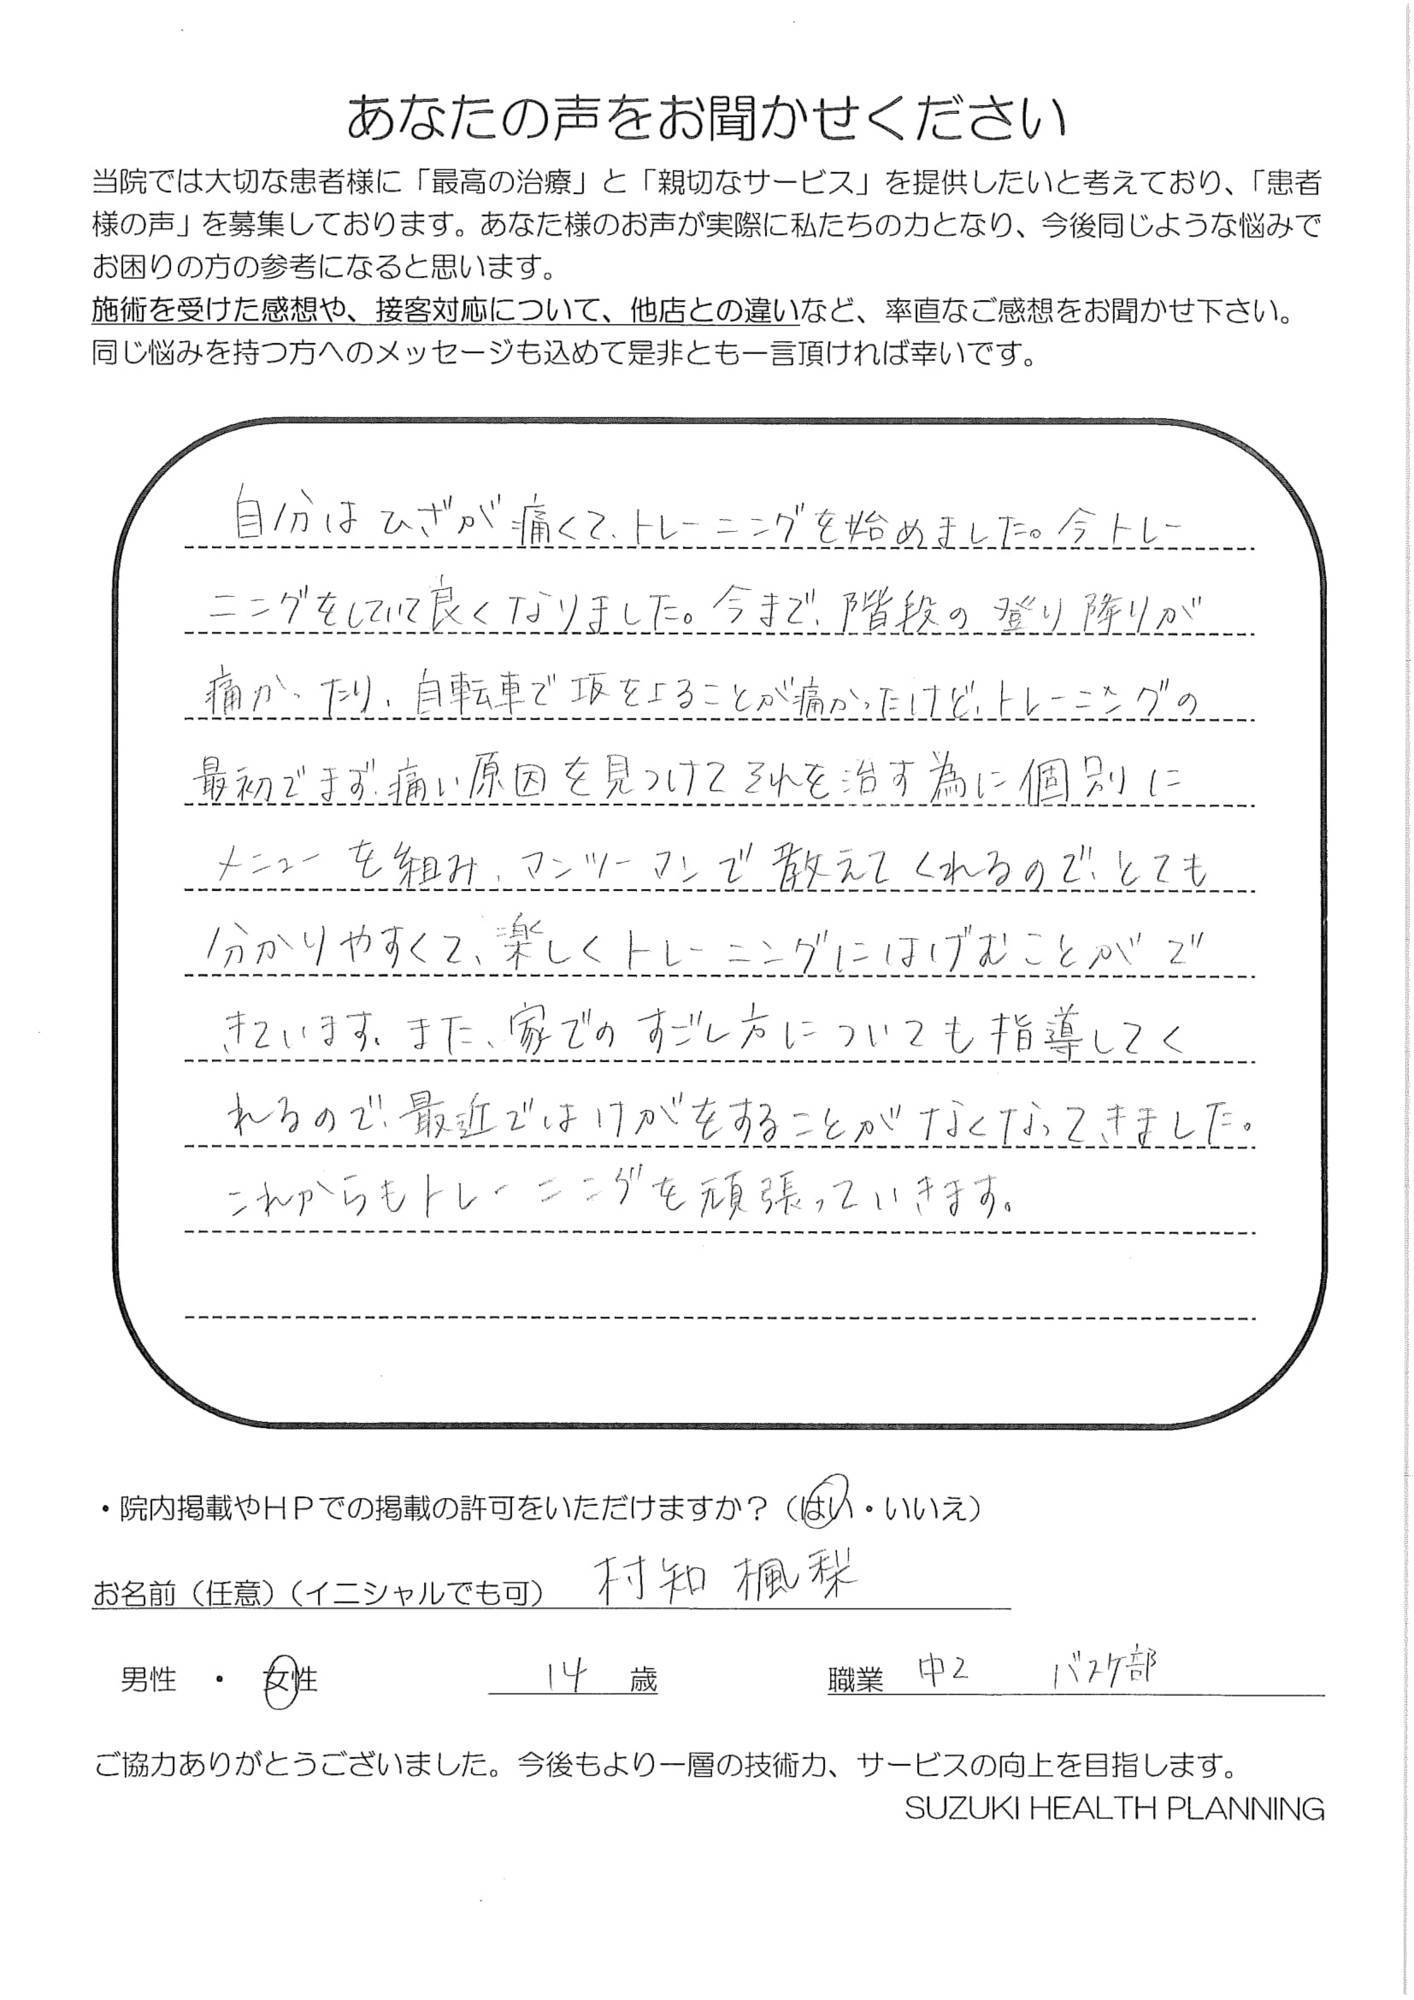 あなたの声をお聞かせください
当院では大切な患者様に「最高の治療」と「親切なサービス」を提供したいと考えており、「患者
様の声」を募集しております。あなた様のお声が実際に私たちの力となり、今後同じような悩みで
お困りの方の参考になると思います。
施術を受けた感想や、接客対応について、他店との違いなど、率直なご感想をお聞かせ下さい。
同じ悩みを持つ方へのメッセージも込めて是非とも一言頂ければ幸いです。
自分はひざが痛くて、トレーニングを始めました。今トレー
ニングをしていて良くなりました。今まで、階段の登り降りが
痛かったり、自転車で坂をよることが痛かったけど、トレーニングの
最初でまず、痛い原因を見つけてそれを治す為に個別に
メニューを組み、マンツーマンで教えてくれるので、とても
分かりやすくて、楽しくトレーニングにはげむことがで
きています。また、家でのすごし方についても指導してく
れるので、最近ではけがをすることがなくなってきました。
これからもトレーニングを頑張っていきます。
・院内掲載やHPでの掲載の許可をいただけますか？（はい・いいえ）
お名前（任意）（イニシャルでも可） 村知 楓梨
男性 ・ 女性 14 歳 職業 中2 バスケ部
ご協力ありがとうございました。今後もより一層の技術力、サービスの向上を目指します。
SUZUKI HEALTH PLANNING